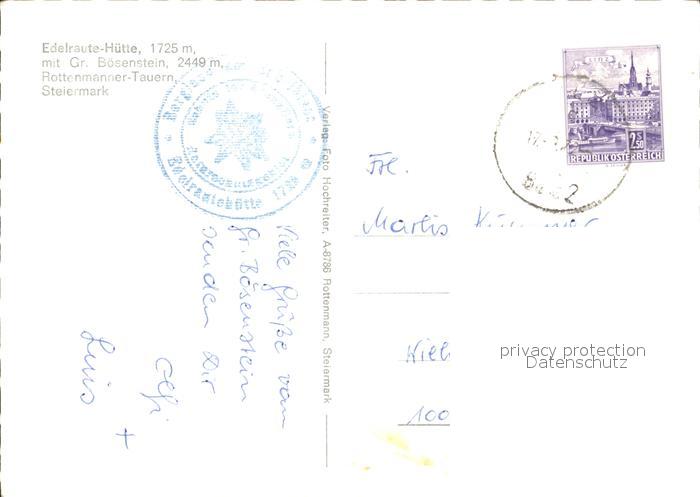 Edelraute-Hütte, 1725 m,
mit Gr. Bösenstein, 2449 m,
Rottenmanner-Tauern,
Steiermark
Edelrautehütte 1725 m
Verlag: Foto Hochreiter, A-8786 Rottenmann, Steiermark
LINZ
2 S 50
REPUBLIK ÖSTERREICH
Viele Grüße vom
Gr. Bösenstein
senden Dir
+
Luis
Frl.
Marlis
100
privacy protection
Datenschutz